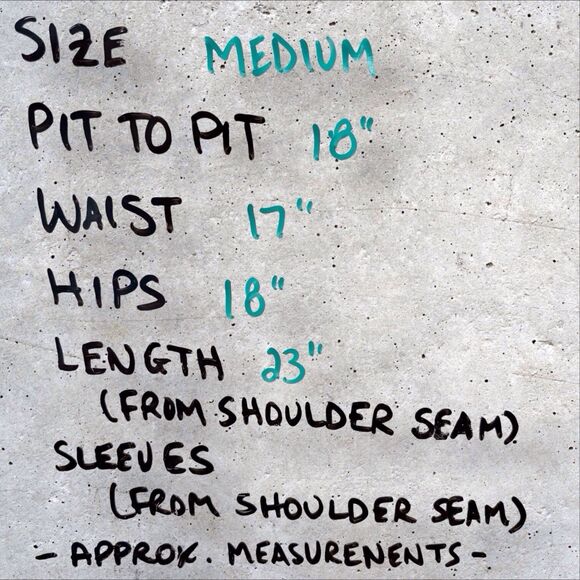 SIZE MEDIUM
PIT TO PIT 18"
WAIST 17"
HIPS 18"
LENGTH 23"
(FROM SHOULDER SEAM)
SLEEVES
(FROM SHOULDER SEAM)
- APPROX. MEASURENENTS -